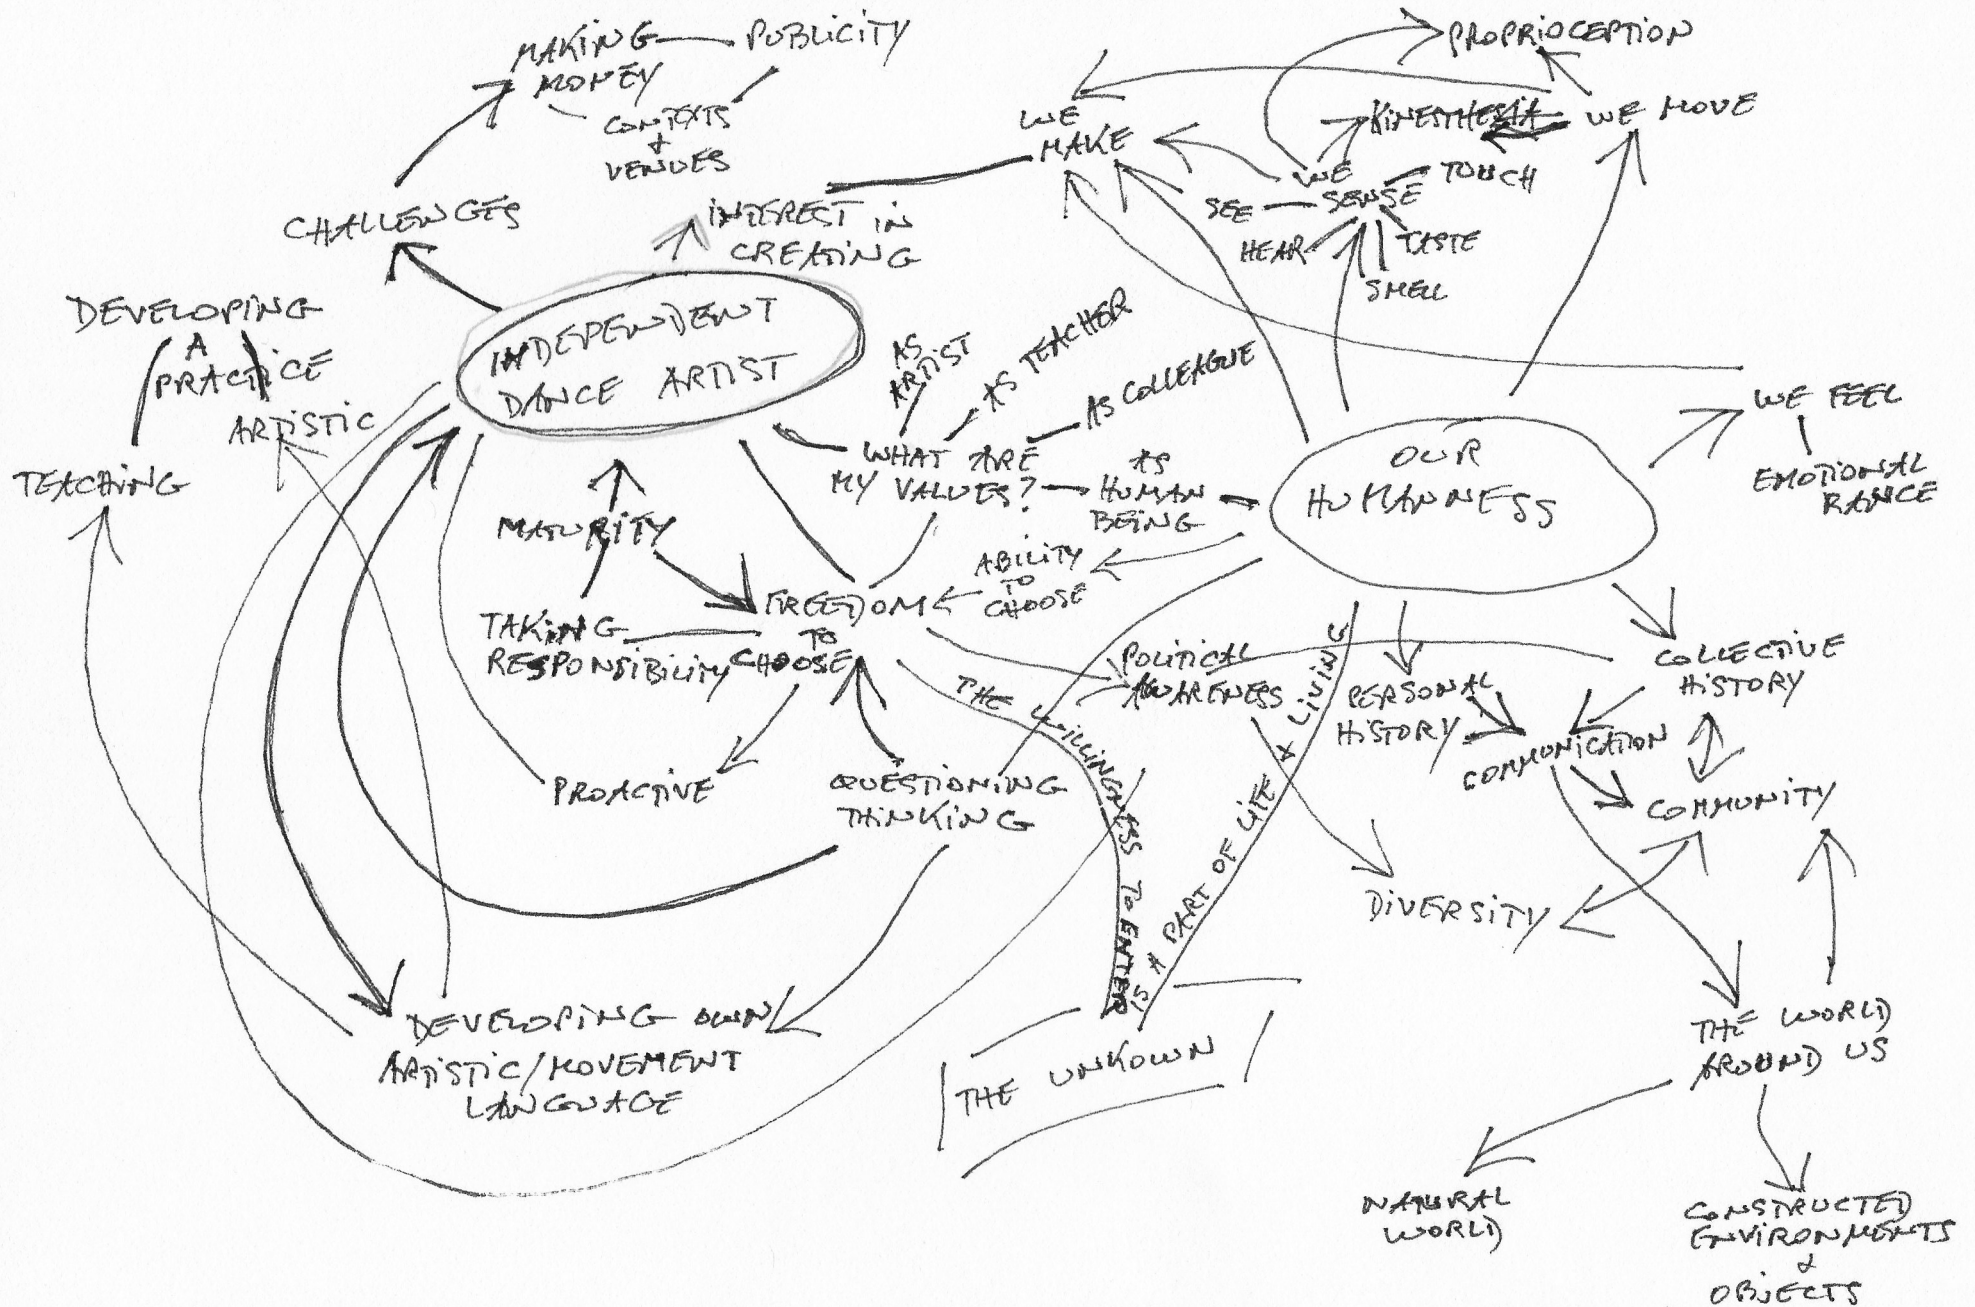 MAKING
MONEY
PUBLICITY
CONTEXTS
+
VENUES
CHALLENGES
INTEREST IN
CREATING
WE
MAKE
PROPRIOCEPTION
KINESTHESIA
WE MOVE
WE
SENSE
TOUCH
SEE
HEAR
TASTE
SMELL
DEVELOPING
A
PRACTICE
ARTISTIC
TEACHING
INDEPENDENT
DANCE ARTIST
AS
ARTIST
AS TEACHER
AS COLLEAGUE
WHAT ARE
MY VALUES?
AS
HUMAN
BEING
OUR
HUMANNESS
WE FEEL
EMOTIONAL
RANGE
MATURITY
ABILITY
TO
CHOOSE
FREEDOM
TO
CHOOSE
TAKING
RESPONSIBILITY
POLITICAL
AWARENESS
PERSONAL
HISTORY
COLLECTIVE
HISTORY
COMMUNICATION
COMMUNITY
PROACTIVE
QUESTIONING
THINKING
THE WILLINGNESS TO ENTER
IS A PART OF LIFE & LIVING
DIVERSITY
DEVELOPING OWN
ARTISTIC/MOVEMENT
LANGUAGE
THE UNKOWN
THE WORLD
AROUND US
NATURAL
WORLD
CONSTRUCTED
ENVIRONMENTS
&
OBJECTS